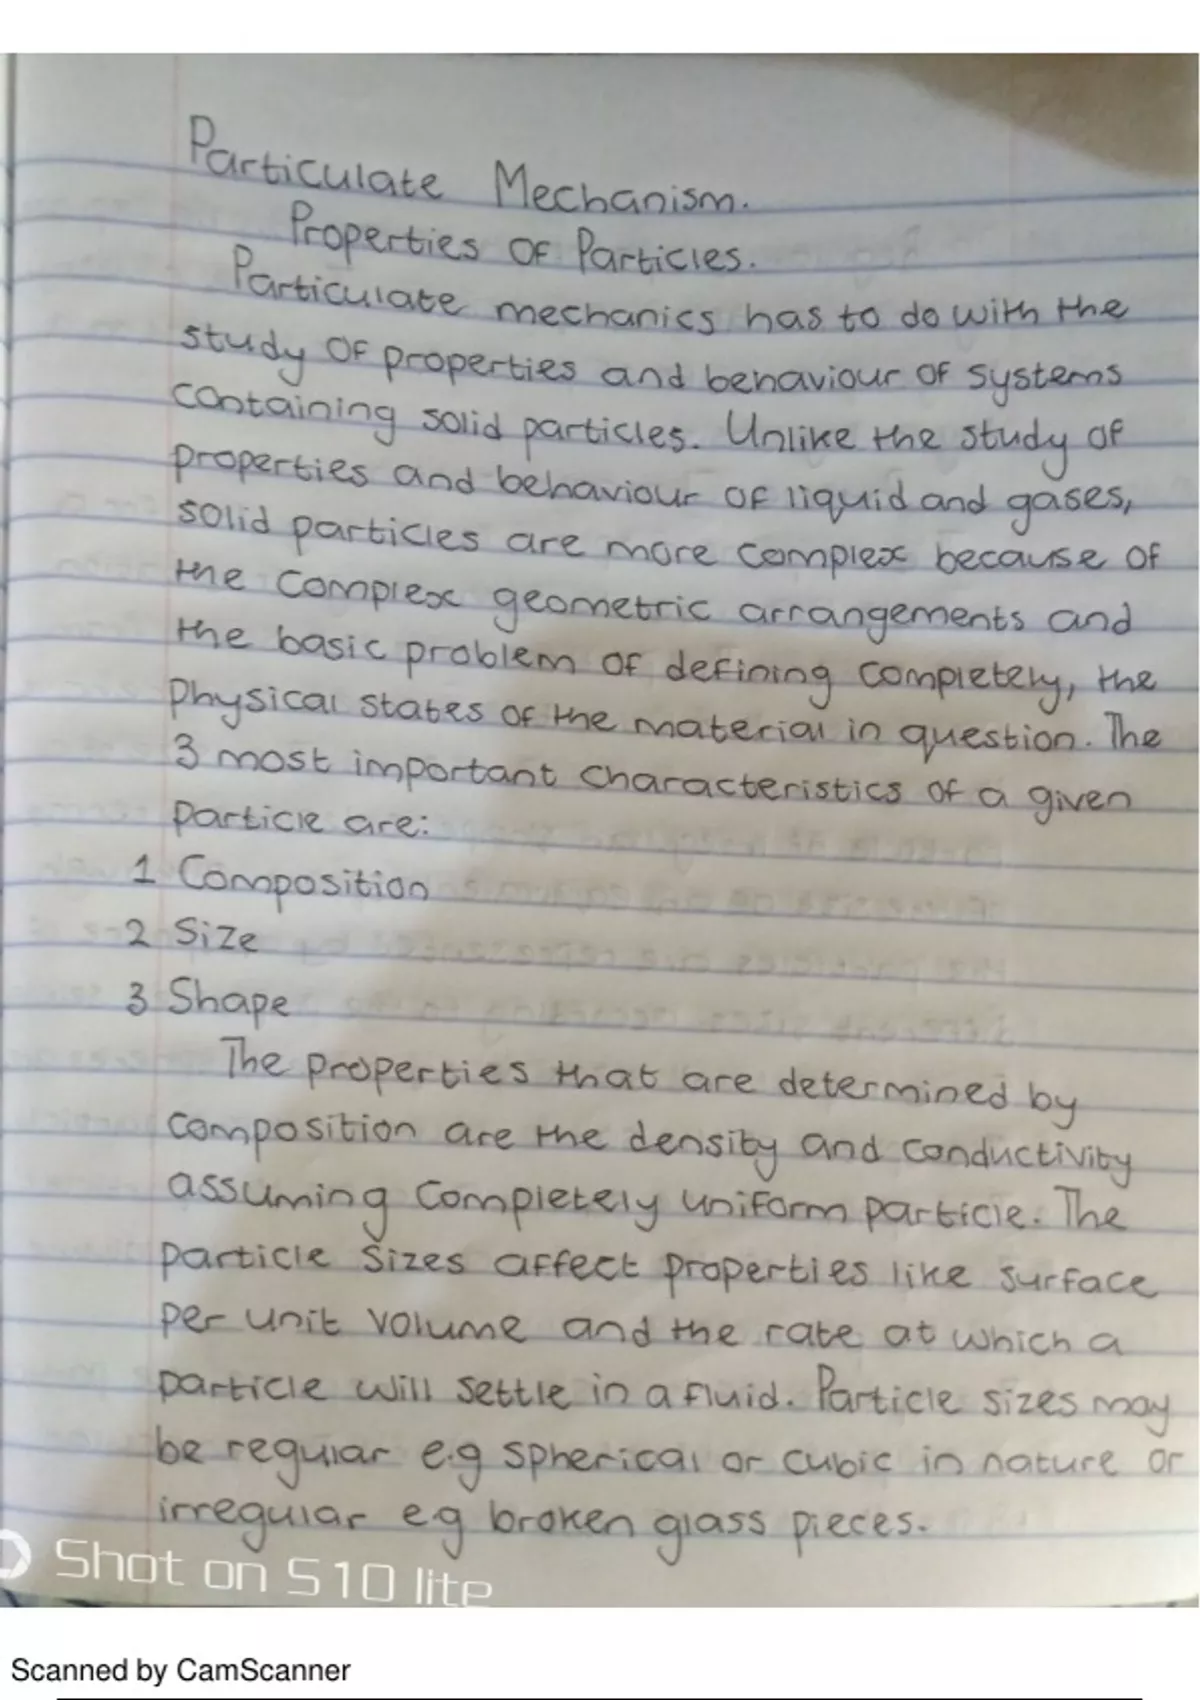 Particulate Mechanism.
Properties of Particles.
Particulate mechanics has to do with the
study of properties and behaviour of systems
containing solid particles. Unlike the study of
properties and behaviour of liquid and gases,
solid particles are more complex because of
the complex geometric arrangements and
the basic problem of defining completely, the
physical states of the material in question. The
3 most important characteristics of a given
particle are:
1 Composition
2 Size
3 Shape
The properties that are determined by
composition are the density and conductivity
assuming completely uniform particle. The
particle sizes affect properties like surface
per unit volume and the rate at which a
particle will settle in a fluid. Particle sizes may
be regular e.g spherical or cubic in nature or
irregular e.g broken glass pieces.
Shot on S10 lite
Scanned by CamScanner